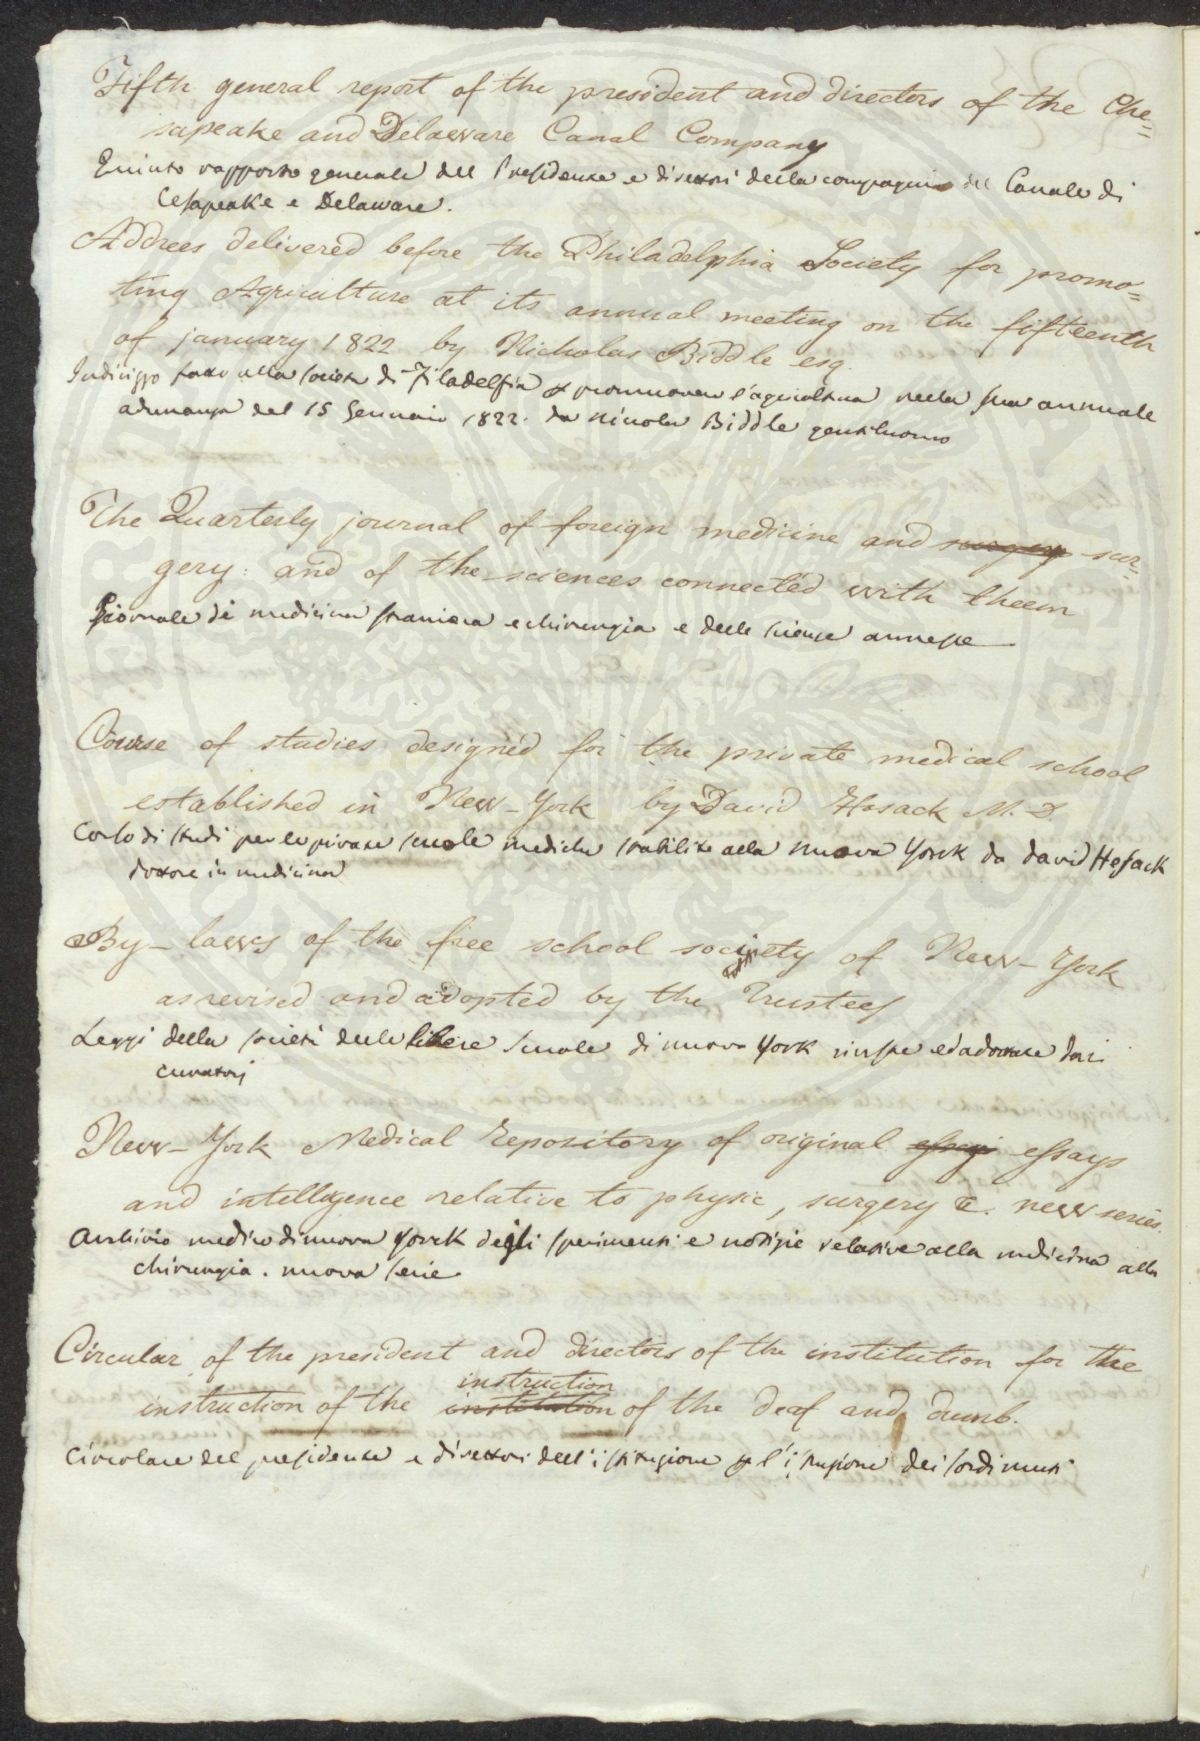 Fifth general report of the president and directors of the Che=
sapeake and Delaware Canal Company
Quinto rapporto generale del Presidente e direttori della compagnia del Canale di
Cesapeake e Delaware.
Addrees delivered before the Philadelphia Society for promo=
ting Agriculture at its annual meeting on the fifteenth
of january 1822 by Nicholas Biddle esq.
Indirizzo fatto alla società di Filadelfia p promuovere l'agricoltura nella sua annuale
adunanza del 15 Gennaio 1822. da Nicola Biddle gentiluomo
The Quarterly journal of foreign medicine and surgery sur=
gery: and of the sciences connected with theem
Giornale di medicina straniera e chirurgia e delle scienze annesse
Course of studies designed for the private medical school
established in New-York by David Hosack M. D.
Corso di studi per le private scuole mediche stabilite alla nuova Yorck da david Hosack
dottore in medicina
By-laws of the free school society of New-York
as revised and adopted by the Trustees
Leggi della società delle libere scuole di nuova York riviste ed adottate dai
curatorj
New-York Medical Repository of original essays
and intelligence relative to physic, surgery &. new series.
Archivio medico di nuova Yorck degli sperimenti e notizie relative alla medicina alla
chirurgia. nuova serie
Circular of the president and directors of the institution for the
instruction
instruction of the institution of the deaf and dumb.
Circolare del presidente e direttori dell'istituzione p l'istruzione dei sordi muti